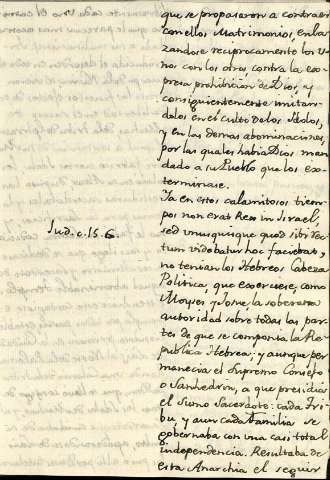 que se propasaron a contraer
con ellos Matrimonios, enla-
zandose reciprocamente los u-
nos con los otros contra la ex-
presa prohibición de Dios, y
consiguientemente imitan-
dolos en el culto de los Idolos,
y en las demas abominaciones,
por las quales habia Dios man-
dado a su Pueblo que los ex-
terminase.
Ya en estos calamitosos tiem-
pos non erat Rex in Israel,
Jud. c. 15. 6.
sed unusquisque quod sibi rec-
tum videbatur hoc faciebat, y
no tenian los Hebreos Cabeza
Politica, que exerciese, como
Moyses y Josue la soberana
autoridad sobre todas las par-
tes de que se componia la Re-
publica Hebrea: y aunque per-
manecia el supremo Consejo
o Sanhedrin, a que presidia
el Sumo Sacerdote: cada Tri-
bu y aun cada familia se
gobernaba con una casi total
independencia. Resultaba de
esta Anarchia el seguir